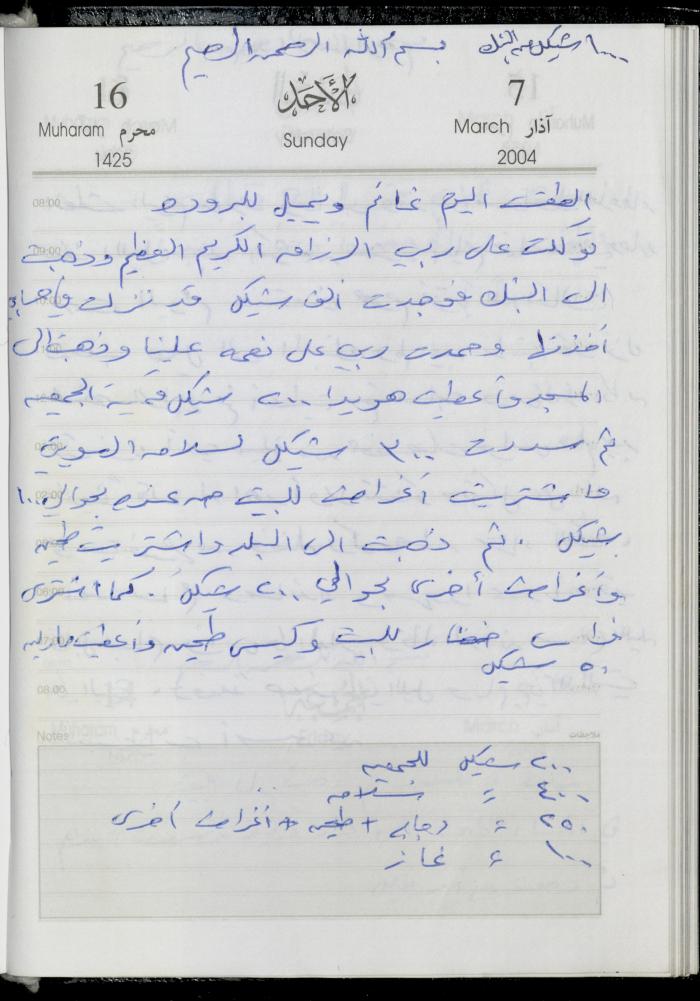 ١٠٠٠ شيكل من البنك بسم الله الرحمن الرحيم
16 الأحد 7
Muharam محرم Sunday March آذار
1425 2004
الطقس اليوم غائم ويميل للبرودة
توكلت على ربي الرزاق الكريم العظيم وذهبت
الى البنك فوجدت ألف شيكل قد نزلت في حسابي
أخذتها وحمدت ربي على نعمه علينا وذهبت الى
المسجد وأعطيت هويدا ٢٠٠ شيكل الجمعيه
ثم سددت ٣٠٠ شيكل لسلامه
واشتريت أغراض للبيت من غزه بحوالي ١٠٠
شيكل . ثم ذهبت الى البلد واشتريت طحين
وأغراض أخرى بحوالي ٢٠٠ شيكل . كما اشترى
فراس خضار للبيت وكيس طحين وأعطيت
٥٠ شيكل
08:00
Notes ملاحظات
٢٠٠ شيكل للجمعيه
٤٠٠ = سلامه
٢٥٠ = دجاج + طحين + أغراض أخرى
١٠٠ = غاز